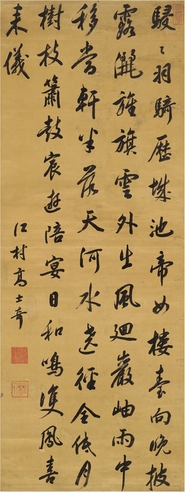 駸〻羽騎歷城池帝女樓臺向晚披
露灑旌旗雲外出風迴巖岫雨中
移當軒半落天河水遶徑全低月
樹枝簫鼓宸遊陪宴日和鳴雙鳳喜
来儀
江村高士奇